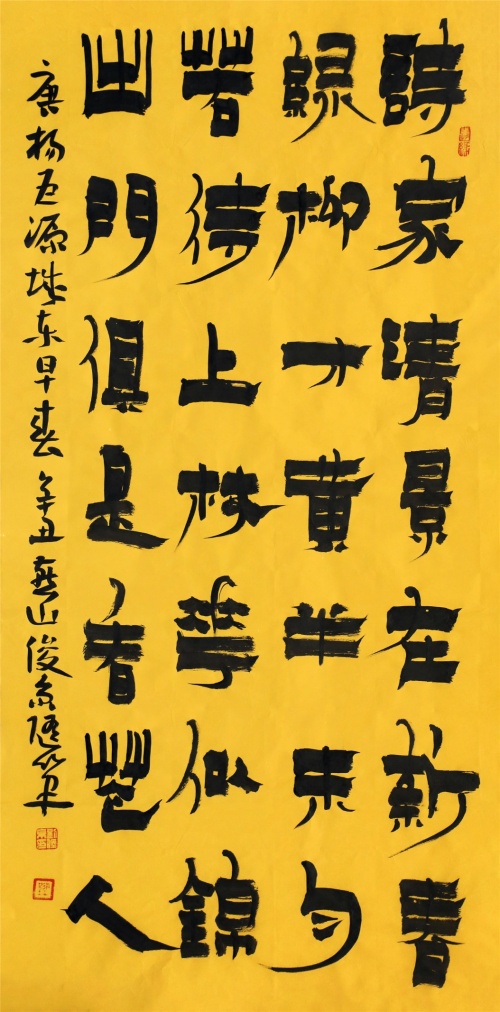 詩家清景在新春
綠柳才黃半未勻
若待上林華似錦
出門俱是看花人
唐杨巨源城东早春辛丑燕山俊隨筆